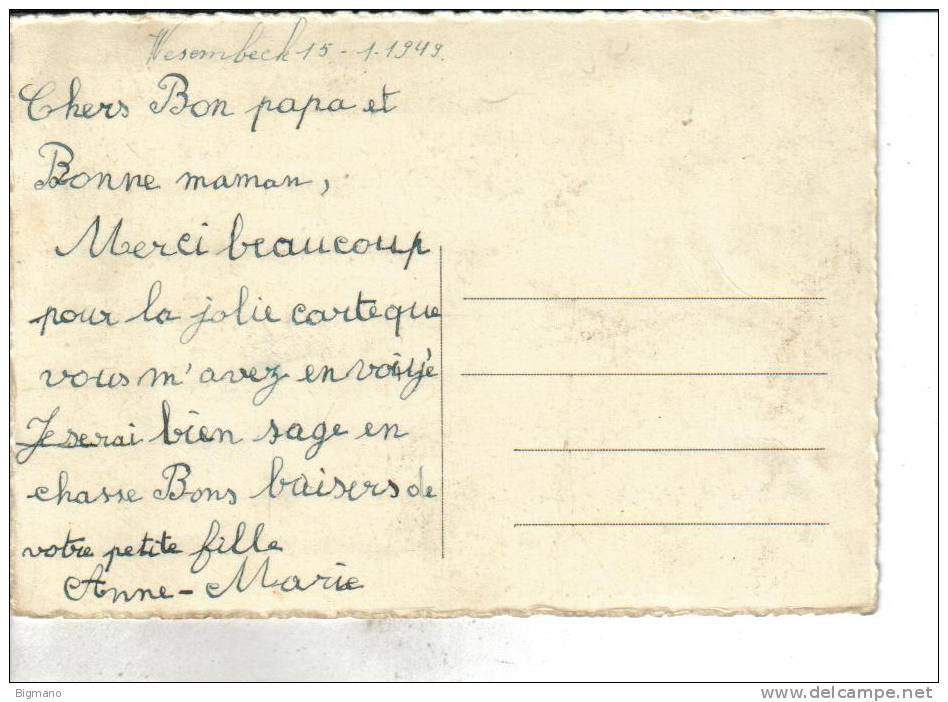 Wesembeek 15-1-1949.
Chers Bon papa et
Bonne maman,
Merci beaucoup
pour la jolie carte que
vous m'avez envoiyé
Je serai bien sage en
chasse Bons baisers de
votre petite fille
Anne-Marie
Bigmano
www.delcampe.net